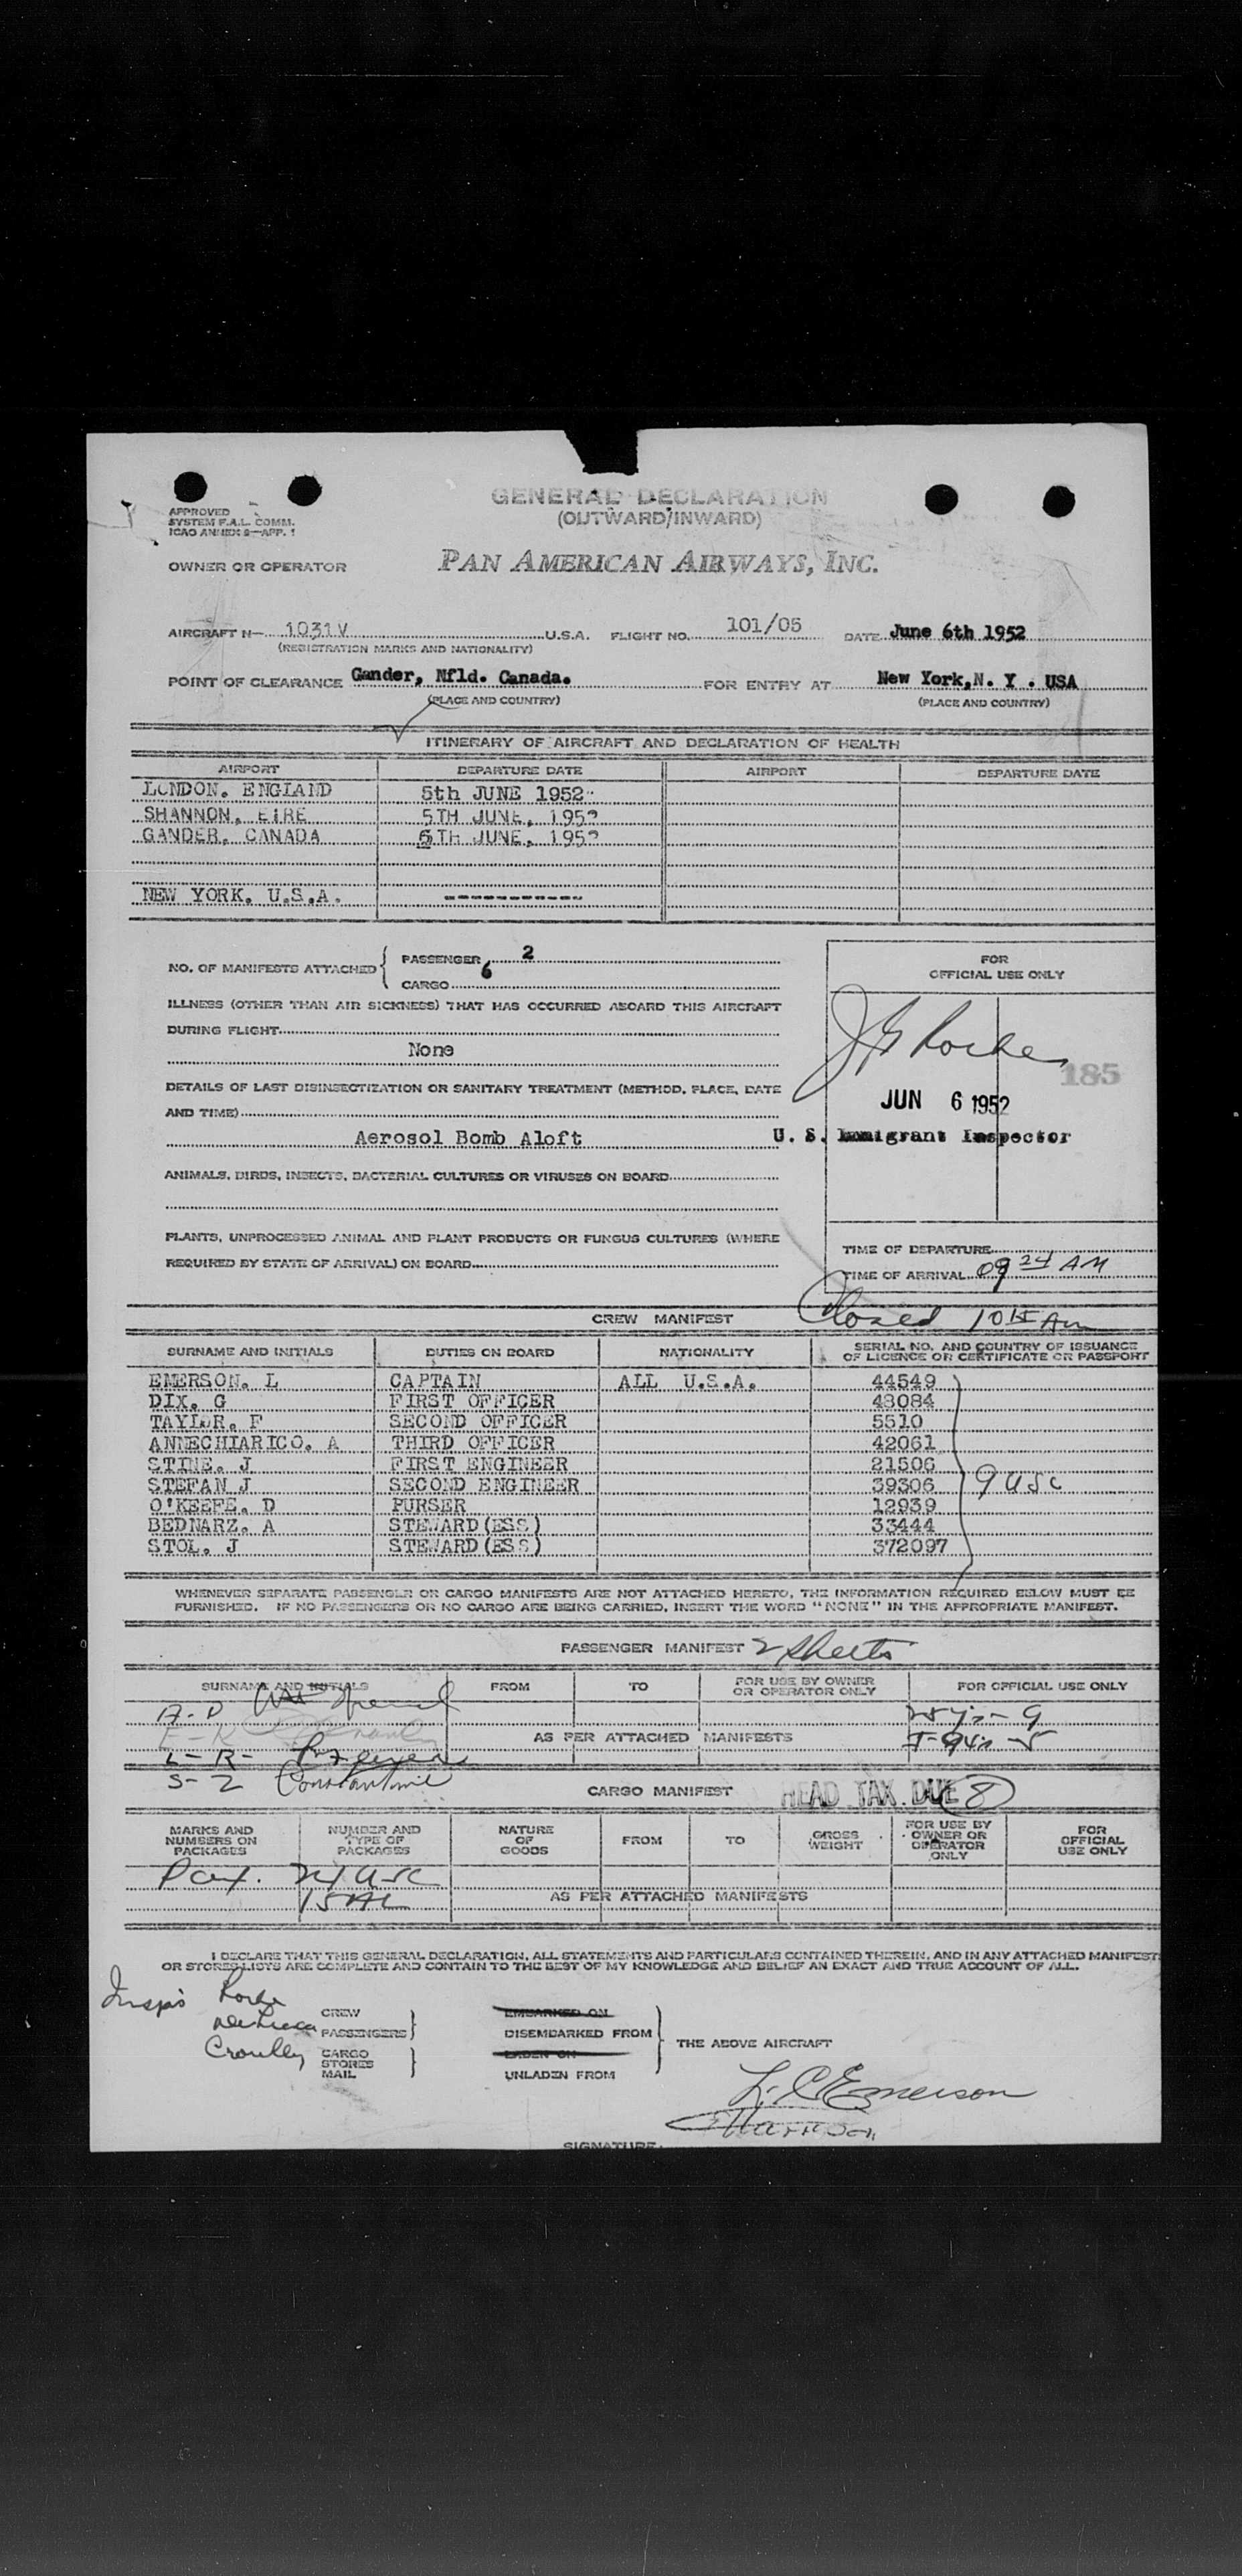 GENERAL DECLARATION
(OUTWARD/INWARD)
APPROVED
SYSTEM F.A.L. COMM.
ICAO ANNEX 9—APP. 1
OWNER OR OPERATOR PAN AMERICAN AIRWAYS, INC.
AIRCRAFT N— 1031V U.S.A. FLIGHT NO. 101/05 DATE June 6th 1952
(REGISTRATION MARKS AND NATIONALITY)
POINT OF CLEARANCE Gander, Nfld. Canada. FOR ENTRY AT New York, N. Y . USA
(PLACE AND COUNTRY) (PLACE AND COUNTRY)
ITINERARY OF AIRCRAFT AND DECLARATION OF HEALTH
AIRPORT DEPARTURE DATE AIRPORT DEPARTURE DATE
LONDON. ENGLAND 5th JUNE 1952
SHANNON, EIRE 5TH JUNE, 1952
GANDER, CANADA 6TH JUNE, 1952
NEW YORK. U.S.A. -----------
NO. OF MANIFESTS ATTACHED { PASSENGER 2
CARGO 6
ILLNESS (OTHER THAN AIR SICKNESS) THAT HAS OCCURRED ABOARD THIS AIRCRAFT
DURING FLIGHT
None
DETAILS OF LAST DISINSECTIZATION OR SANITARY TREATMENT (METHOD, PLACE, DATE
AND TIME)
Aerosol Bomb Aloft
ANIMALS, BIRDS, INSECTS, BACTERIAL CULTURES OR VIRUSES ON BOARD
PLANTS, UNPROCESSED ANIMAL AND PLANT PRODUCTS OR FUNGUS CULTURES (WHERE
REQUIRED BY STATE OF ARRIVAL) ON BOARD
FOR
OFFICIAL USE ONLY
185
JUN 6 1952
U. S. Immigrant Inspector
TIME OF DEPARTURE
TIME OF ARRIVAL 09 24 AM
Closed 10 15 Am
CREW MANIFEST
SURNAME AND INITIALS DUTIES ON BOARD NATIONALITY SERIAL NO. AND COUNTRY OF ISSUANCE
OF LICENCE OR CERTIFICATE OR PASSPORT
EMERSON. L CAPTAIN ALL U.S.A. 44549
DIX. G FIRST OFFICER 43084
TAYLOR. F SECOND OFFICER 5510
ANNECHIARICO. A THIRD OFFICER 42061
STINE. J FIRST ENGINEER 21506
STEFAN J SECOND ENGINEER 39306 9 USC
O'KEEFE. D PURSER 12939
BEDNARZ. A STEWARD(ESS) 33444
STOL. J STEWARD(ESS) 372097
WHENEVER SEPARATE PASSENGER OR CARGO MANIFESTS ARE NOT ATTACHED HERETO, THE INFORMATION REQUIRED BELOW MUST BE
FURNISHED. IF NO PASSENGERS OR NO CARGO ARE BEING CARRIED, INSERT THE WORD "NONE" IN THE APPROPRIATE MANIFEST.
PASSENGER MANIFEST 2 sheets
SURNAME AND INITIALS FROM TO FOR USE BY OWNER
OR OPERATOR ONLY FOR OFFICIAL USE ONLY
A-D
E-K AS PER ATTACHED MANIFESTS
L-R-
S-Z Constantine
CARGO MANIFEST HEAD TAX DUE 8
MARKS AND
NUMBERS ON
PACKAGES NUMBER AND
TYPE OF
PACKAGES NATURE
OF
GOODS FROM TO GROSS
WEIGHT FOR USE BY
OWNER OR
OPERATOR
ONLY FOR
OFFICIAL
USE ONLY
Pax. 24 USC
15 AL AS PER ATTACHED MANIFESTS
I DECLARE THAT THIS GENERAL DECLARATION, ALL STATEMENTS AND PARTICULARS CONTAINED THEREIN, AND IN ANY ATTACHED MANIFEST
OR STORES LISTS ARE COMPLETE AND CONTAIN TO THE BEST OF MY KNOWLEDGE AND BELIEF AN EXACT AND TRUE ACCOUNT OF ALL.
Insp's
Crowley
CREW
PASSENGERS }
CARGO
STORES }
MAIL
EMBARKED ON
DISEMBARKED FROM
LADEN ON
UNLADEN FROM
THE ABOVE AIRCRAFT
L. C Emerson
SIGNATURE